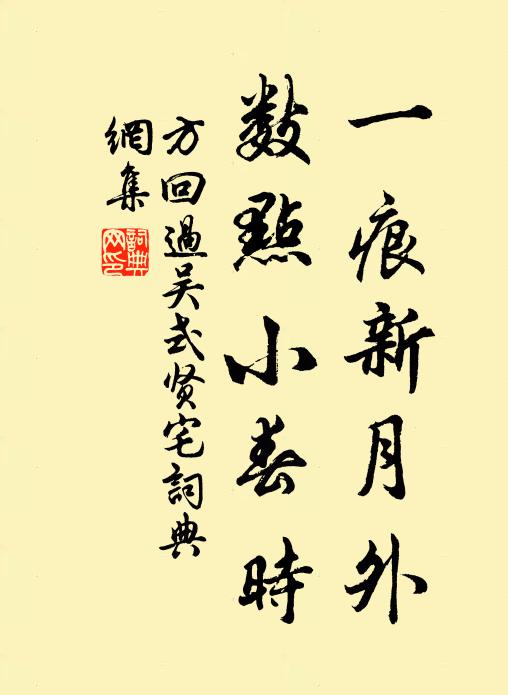 一痕新月外
數點小春時
方回過吴式贤宅詞典
網集
詞典
网印